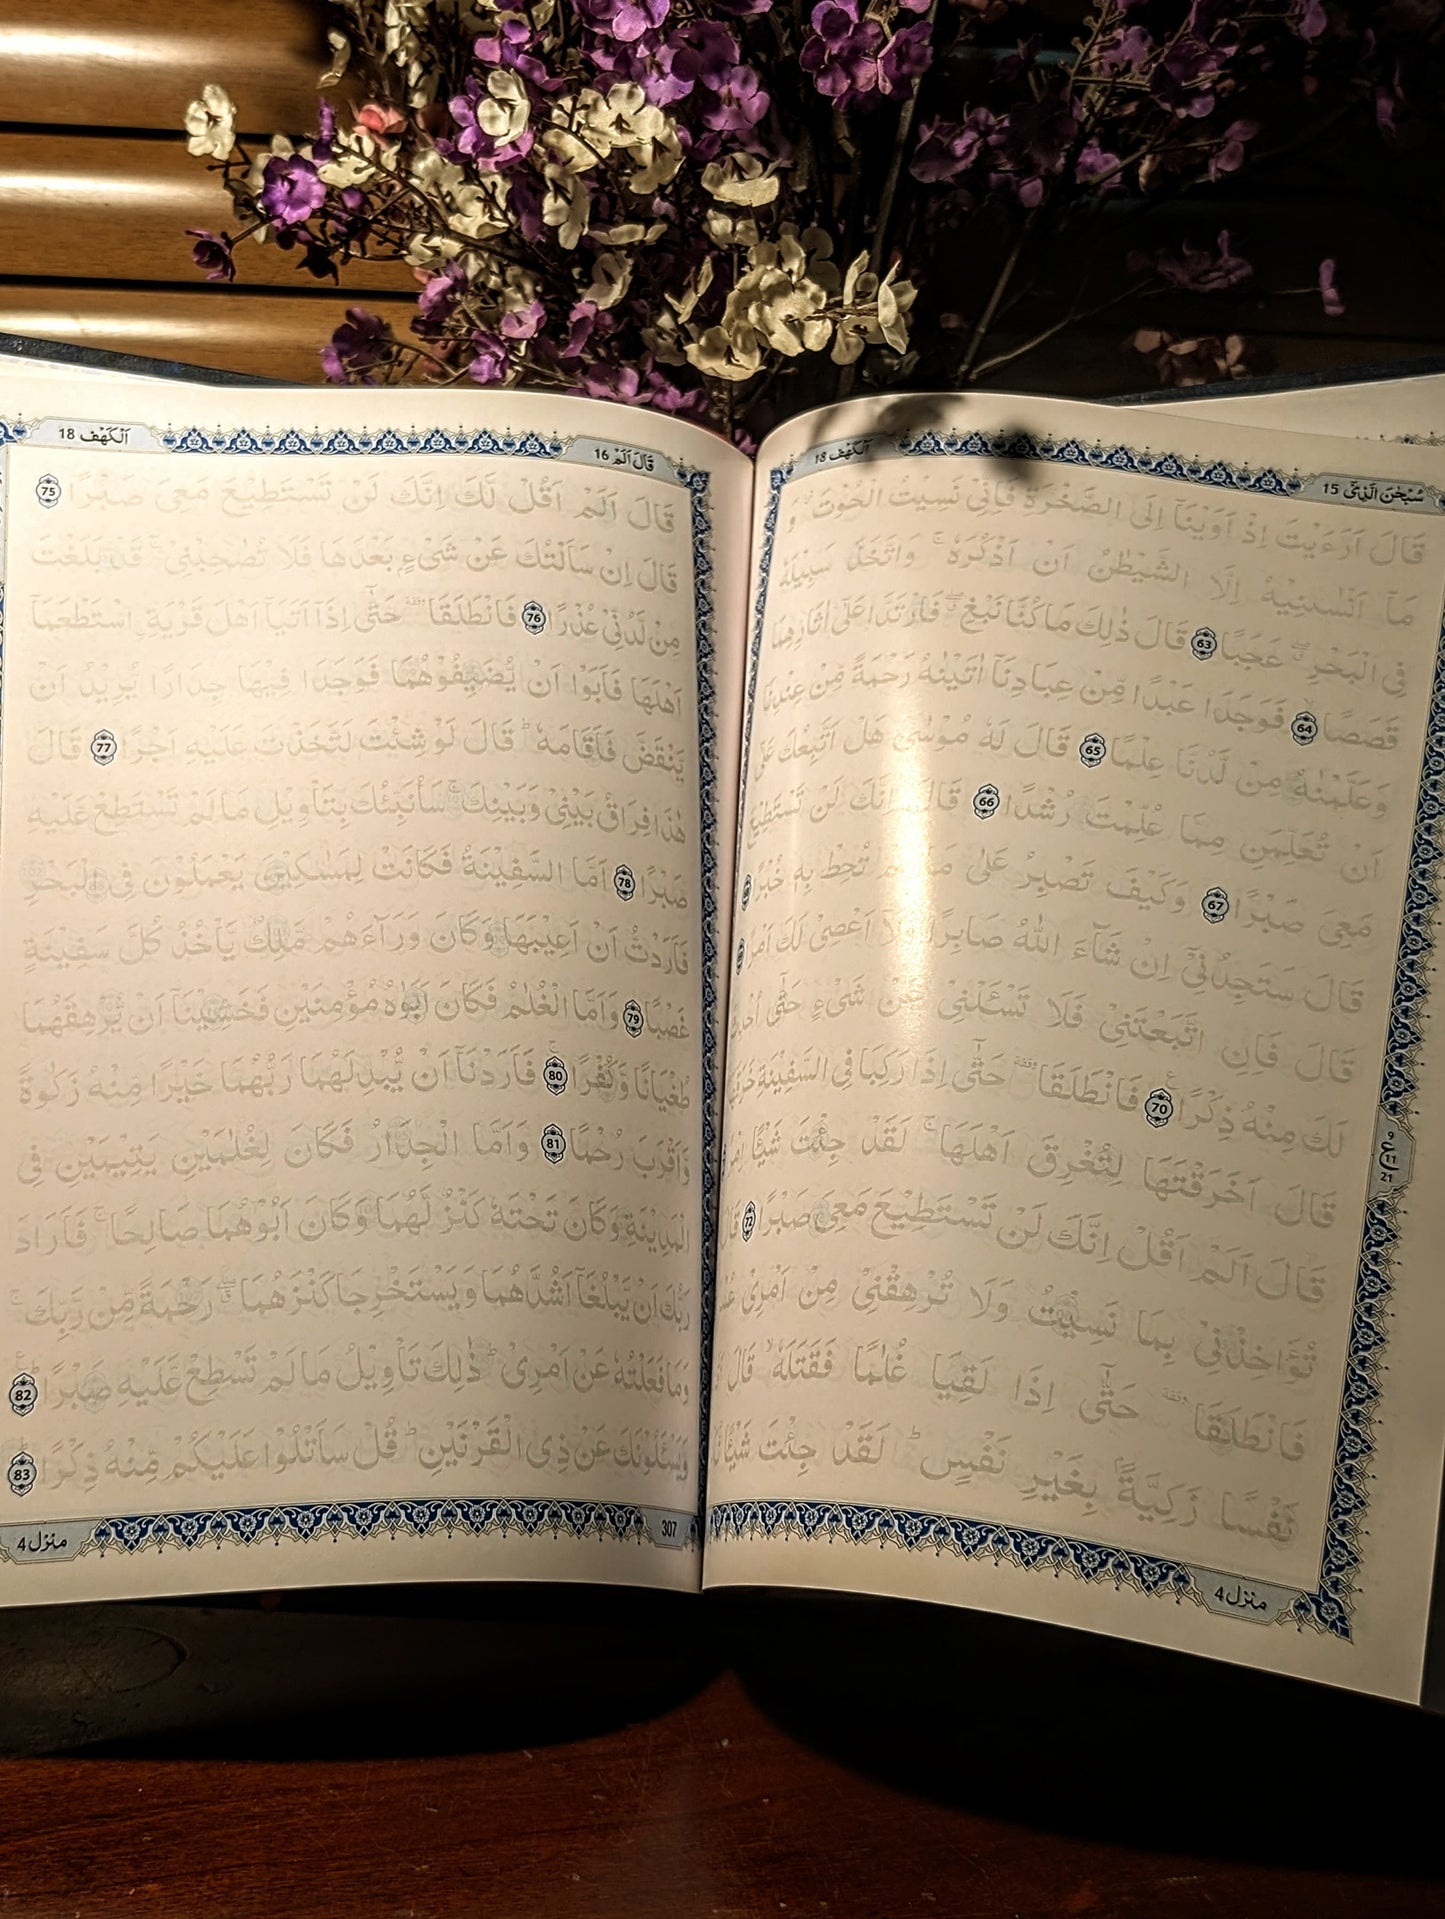 سُبْحٰنَ الَّذِىْٓ 15
اَلْكَهْف 18
قَالَ اَرَءَيْتَ اِذْ اَوَيْنَآ اِلَى الصَّخْرَةِ فَاِنِّىْ نَسِيْتُ الْحُوْتَ ؗ وَ
مَآ اَنْسٰىنِيْهُ اِلَّا الشَّيْطٰنُ اَنْ اَذْكُرَهٗ ۚ وَاتَّخَذَ سَبِيْلَهٗ
فِى الْبَحْرِ ۖ عَجَبًا 63 قَالَ ذٰلِكَ مَا كُنَّا نَبْغِ ۖ فَارْتَدَّا عَلٰٓى اٰثَارِهِمَا
قَصَصًا 64 فَوَجَدَا عَبْدًا مِّنْ عِبَادِنَآ اٰتَيْنٰهُ رَحْمَةً مِّنْ عِنْدِنَا
وَعَلَّمْنٰهُ مِنْ لَّدُنَّا عِلْمًا 65 قَالَ لَهٗ مُوْسٰى هَلْ اَتَّبِعُكَ عَلٰٓى
اَنْ تُعَلِّمَنِ مِمَّا عُلِّمْتَ رُشْدًا 66 قَالَ اِنَّكَ لَنْ تَسْتَطِيْعَ
مَعِىَ صَبْرًا 67 وَكَيْفَ تَصْبِرُ عَلٰى مَا لَمْ تُحِطْ بِهٖ خُبْرًا
قَالَ سَتَجِدُنِىْٓ اِنْ شَآءَ اللّٰهُ صَابِرًا وَّلَآ اَعْصِىْ لَكَ اَمْرًا
قَالَ فَاِنِ اتَّبَعْتَنِىْ فَلَا تَسْـَٔلْنِىْ عَنْ شَىْءٍ حَتّٰٓى اُحْدِثَ
لَكَ مِنْهُ ذِكْرًا 70 فَانْطَلَقَا حَتّٰٓى اِذَا رَكِبَا فِى السَّفِيْنَةِ خَرَقَهَا
قَالَ اَخَرَقْتَهَا لِتُغْرِقَ اَهْلَهَا ۚ لَقَدْ جِئْتَ شَيْـًٔا اِمْرًا
قَالَ اَلَمْ اَقُلْ اِنَّكَ لَنْ تَسْتَطِيْعَ مَعِىَ صَبْرًا 72 قَالَ
تُؤَاخِذْنِىْ بِمَا نَسِيْتُ وَلَا تُرْهِقْنِىْ مِنْ اَمْرِىْ
فَانْطَلَقَا حَتّٰٓى اِذَا لَقِيَا غُلٰمًا فَقَتَلَهٗ ۙ قَالَ
نَفْسًا زَكِيَّةً ۢ بِغَيْرِ نَفْسٍ ؕ لَقَدْ جِئْتَ شَيْـًٔا
ع
11
21
منزل 4
قَالَ اَلَمْ 16
اَلْكَهْف 18
قَالَ اَلَمْ اَقُلْ لَّكَ اِنَّكَ لَنْ تَسْتَطِيْعَ مَعِىَ صَبْرًا 75
قَالَ اِنْ سَاَلْتُكَ عَنْ شَىْءٍۭ بَعْدَهَا فَلَا تُصٰحِبْنِىْ ۚ قَدْ بَلَغْتَ
مِنْ لَّدُنِّىْ عُذْرًا 76 فَانْطَلَقَا حَتّٰٓى اِذَآ اَتَيَآ اَهْلَ قَرْيَةِ ۨ اسْتَطْعَمَآ
اَهْلَهَا فَاَبَوْا اَنْ يُّضَيِّفُوْهُمَا فَوَجَدَا فِيْهَا جِدَارًا يُّرِيْدُ اَنْ
يَّنْقَضَّ فَاَقَامَهٗ ؕ قَالَ لَوْ شِئْتَ لَتَّخَذْتَ عَلَيْهِ اَجْرًا 77 قَالَ
هٰذَا فِرَاقُ بَيْنِىْ وَبَيْنِكَ ۚ سَاُنَبِّئُكَ بِتَاْوِيْلِ مَا لَمْ تَسْتَطِعْ عَّلَيْهِ
صَبْرًا 78 اَمَّا السَّفِيْنَةُ فَكَانَتْ لِمَسٰكِيْنَ يَعْمَلُوْنَ فِى الْبَحْرِ
فَاَرَدْتُّ اَنْ اَعِيْبَهَا وَكَانَ وَرَآءَهُمْ مَّلِكٌ يَّاْخُذُ كُلَّ سَفِيْنَةٍ
غَصْبًا 79 وَاَمَّا الْغُلٰمُ فَكَانَ اَبَوٰهُ مُؤْمِنَيْنِ فَخَشِيْنَآ اَنْ يُّرْهِقَهُمَا
طُغْيَانًا وَّكُفْرًا 80 فَاَرَدْنَآ اَنْ يُّبْدِلَهُمَا رَبُّهُمَا خَيْرًا مِّنْهُ زَكٰوةً
وَّاَقْرَبَ رُحْمًا 81 وَاَمَّا الْجِدَارُ فَكَانَ لِغُلٰمَيْنِ يَتِيْمَيْنِ فِى
الْمَدِيْنَةِ وَكَانَ تَحْتَهٗ كَنْزٌ لَّهُمَا وَكَانَ اَبُوْهُمَا صَالِحًا ۚ فَاَرَادَ
رَبُّكَ اَنْ يَّبْلُغَآ اَشُدَّهُمَا وَيَسْتَخْرِجَا كَنْزَهُمَا ۖ رَحْمَةً مِّنْ رَّبِّكَ ۚ
وَمَا فَعَلْتُهٗ عَنْ اَمْرِىْ ؕ ذٰلِكَ تَاْوِيْلُ مَا لَمْ تَسْطِعْ عَّلَيْهِ صَبْرًا 82
وَيَسْـَٔلُوْنَكَ عَنْ ذِى الْقَرْنَيْنِ ؕ قُلْ سَاَتْلُوْا عَلَيْكُمْ مِّنْهُ ذِكْرًا 83
307
منزل 4